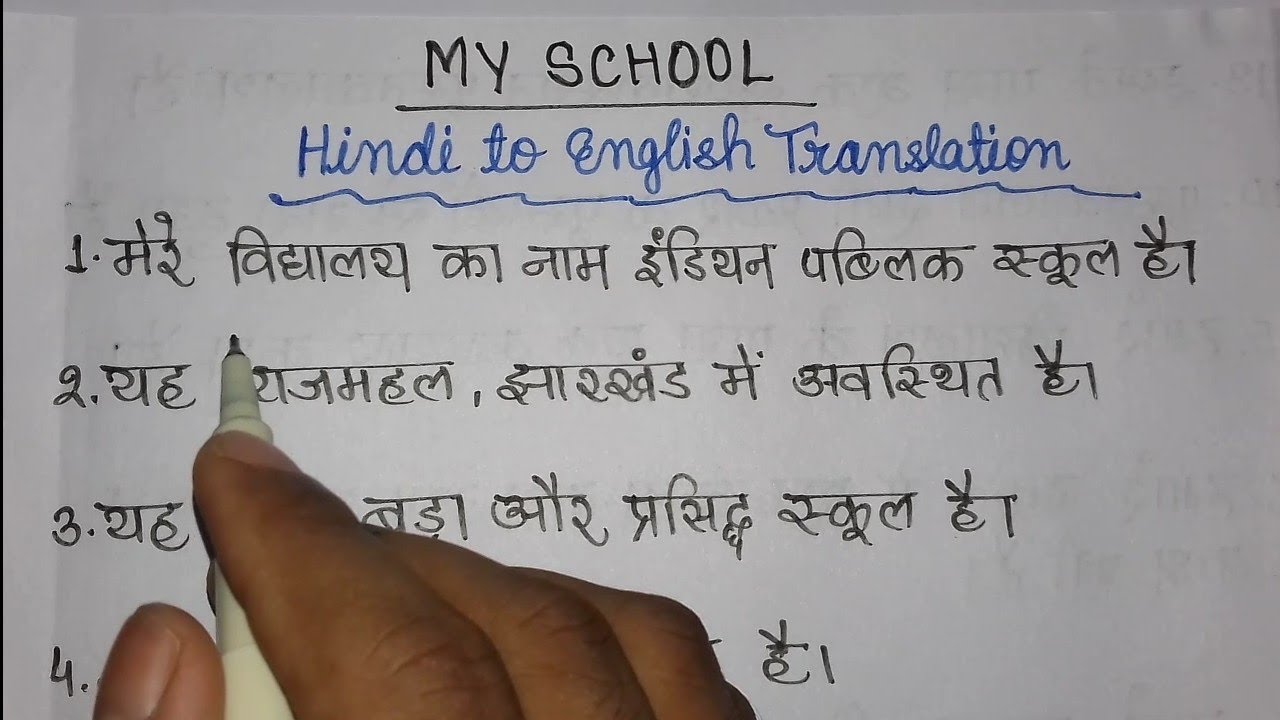 MY SCHOOL
Hindi to English Translation
1. मेरे विद्यालय का नाम इंडियन पब्लिक स्कूल है।
२. यह राजमहल, झारखंड में अवस्थित है।
३. यह बड़ा और प्रसिद्ध स्कूल है।
४. है।